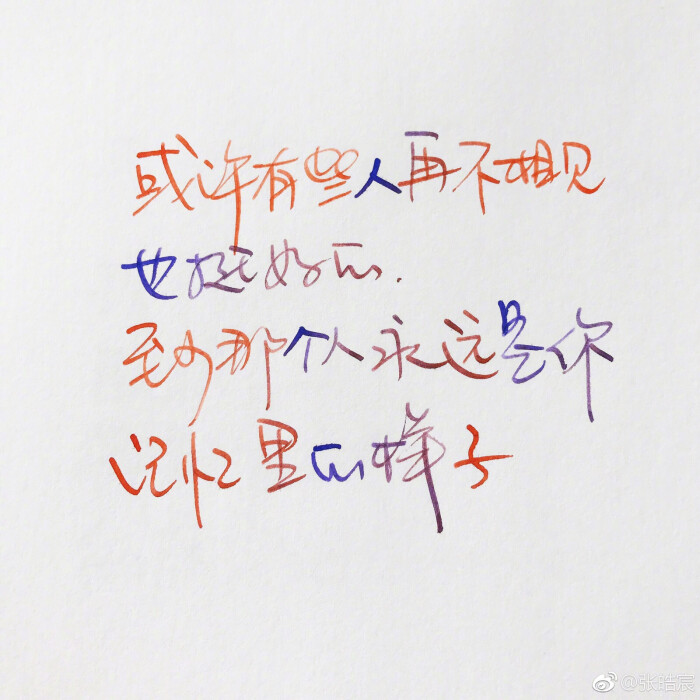 或许有些人再不相见
也挺好的.
至少那个人永远是你
记忆里的样子
@张皓宸